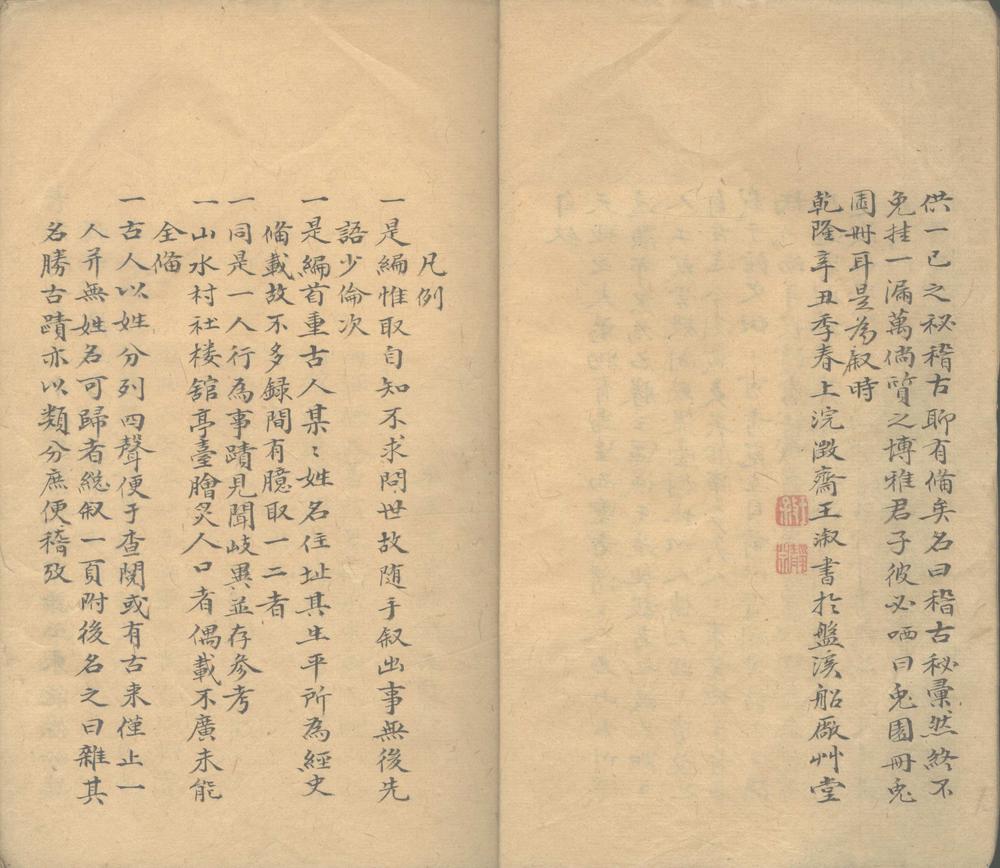 供一己之秘稽古聊有備矣名曰稽古秘彙然終不
免挂一漏萬倘質之博雅君子彼必哂曰兎園冊兎
園冊耳是為叙時
乾隆辛丑季春上浣澂齋王淑書扵盤溪船廠艸堂
凡例
一是編惟取自知不求問世故随手叙出事無後先
語少倫次
一是編首重古人某〻姓名住址其生平所為經史
偹載故不多録間有臆取一二者
一同是一人行為事蹟見聞岐異並存參考
一山水村社楼舘亭臺膾炙人口者偶載不廣未能
全偹
一古人以姓分列四聲便于查閱或有古来僅止一
人并無姓名可歸者総叙一頁附後名之曰雜其
名勝古蹟亦以類分庶便稽攷